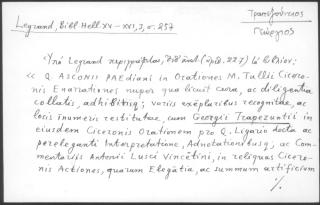 Legrand, Bibl. Hell XV–XXI, 3, σ. 257
Τραπεζούντιος
Γεώργιος
Ὑπὸ Legrand περιγράφεται, (ἀριθ. 227) τὸ βιβλίον:
« Q. ASCONII PAEdiani in Orationes M. Tullii Cicero-
nis Enarrationes nuper qua licuit cura, ac diligentia
collatis, adhibitisq; variis exemplaribus recognitae, ac
locis innumeris restitutae, cum Georgii Trapezuntii in
eiusdem Ciceronis Orationem pro Q. Ligario docta ac
pereleganti Interpretatione, Adnotationibusq; ac Com-
mentariis Antonii Lusci Vincētini, in reliquas Cicero-
nis Actiones, quarum Elegātia, ac summum artificium
./.